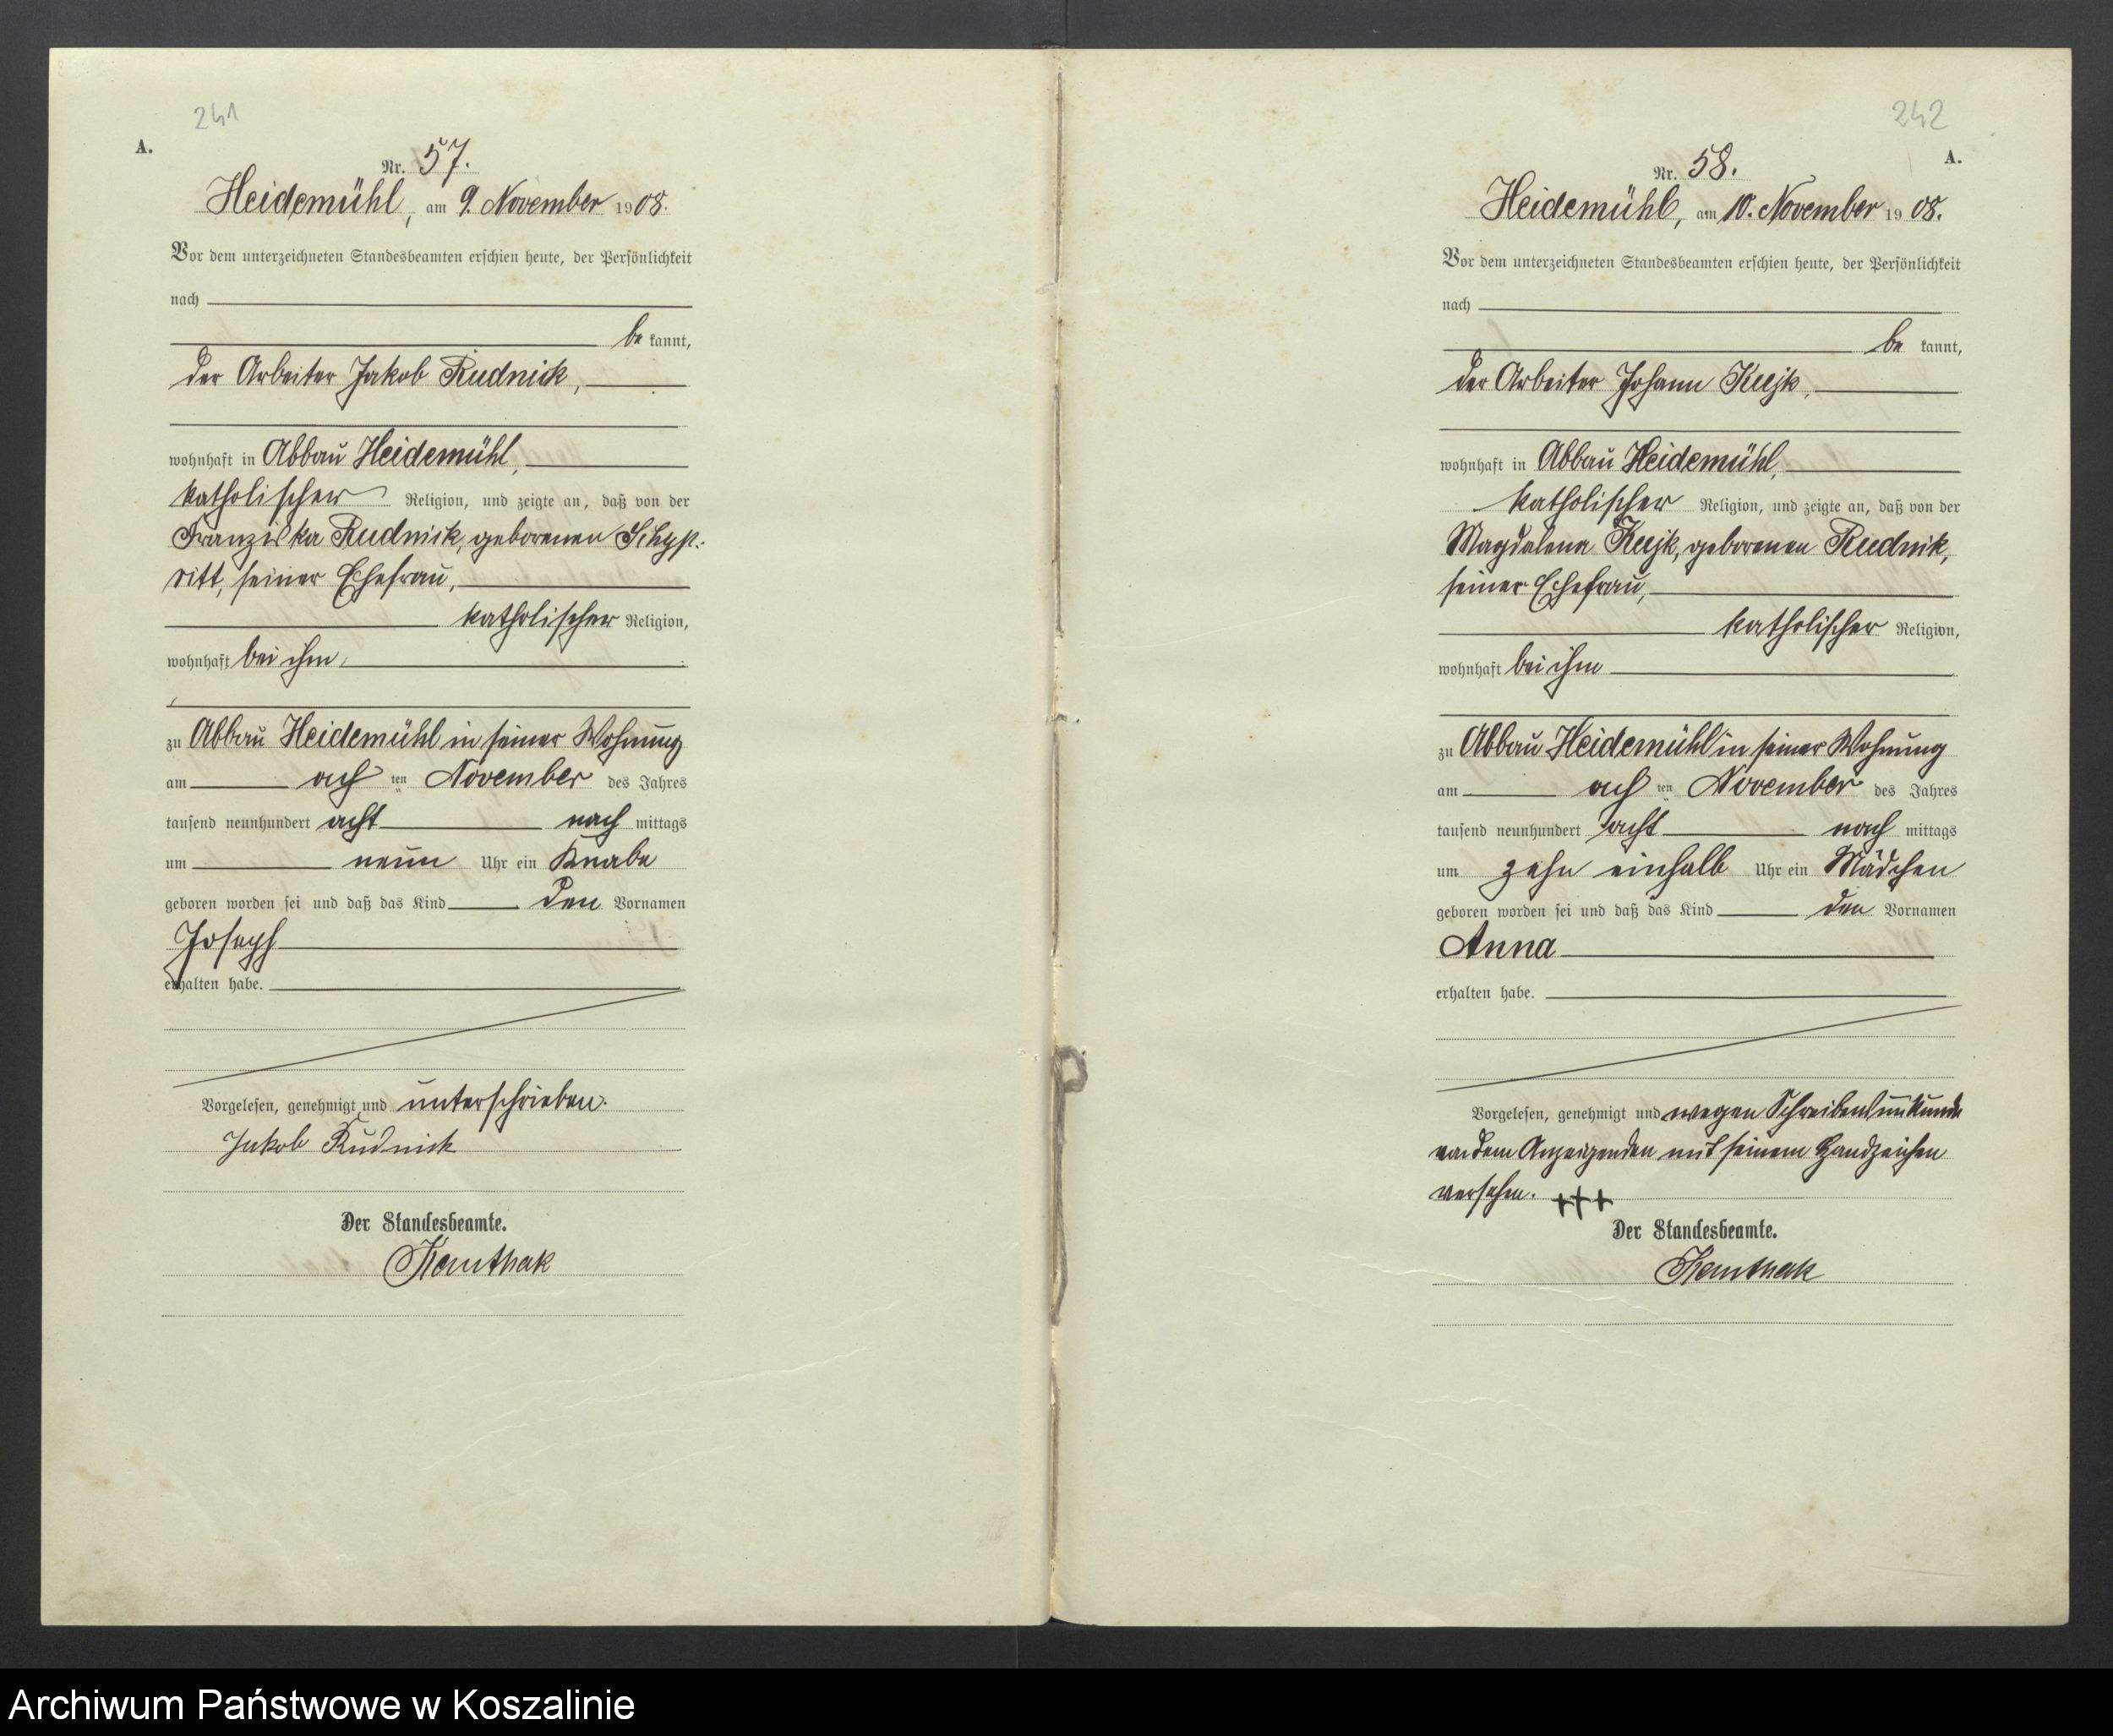 241
A.
Nr. 57.
Heidemühl, am 9. November 1908.
Vor dem unterzeichneten Standesbeamten erschien heute, der Persönlichkeit
nach
be kannt,
der Arbeiter Jakob Rudnick,
wohnhaft in Abbau Heidemühl,
katholischer Religion, und zeigte an, daß von der
Franziska Rudnick, geborenen Schyp-
ritt, seiner Ehefrau,
katholischer Religion,
wohnhaft bei ihm,
zu Abbau Heidemühl in seiner Wohnung
am ach ten November des Jahres
tausend neunhundert acht nach mittags
um neun Uhr ein Knabe
geboren worden sei und daß das Kind den Vornamen
Joseph
erhalten habe.
Vorgelesen, genehmigt und unterschrieben.
Jakob Rudnick
Der Standesbeamte.
Kemthak
242
A.
Nr. 58.
Heidemühl, am 10. November 1908.
Vor dem unterzeichneten Standesbeamten erschien heute, der Persönlichkeit
nach
be kannt,
der Arbeiter Johann Kujk,
wohnhaft in Abbau Heidemühl,
katholischer Religion, und zeigte an, daß von der
Magdalena Kujk, geborenen Rudnik,
seiner Ehefrau,
katholischer Religion,
wohnhaft bei ihm
zu Abbau Heidemühl in seiner Wohnung
am ach ten November des Jahres
tausend neunhundert acht nach mittags
um zehn einhalb Uhr ein Mädchen
geboren worden sei und daß das Kind den Vornamen
Anna
erhalten habe.
Vorgelesen, genehmigt und wegen Schreibensunkunde
von dem Anzeigenden mit seinem Handzeichen
versehen. +++
Der Standesbeamte.
Kemthak
Archiwum Państwowe w Koszalinie